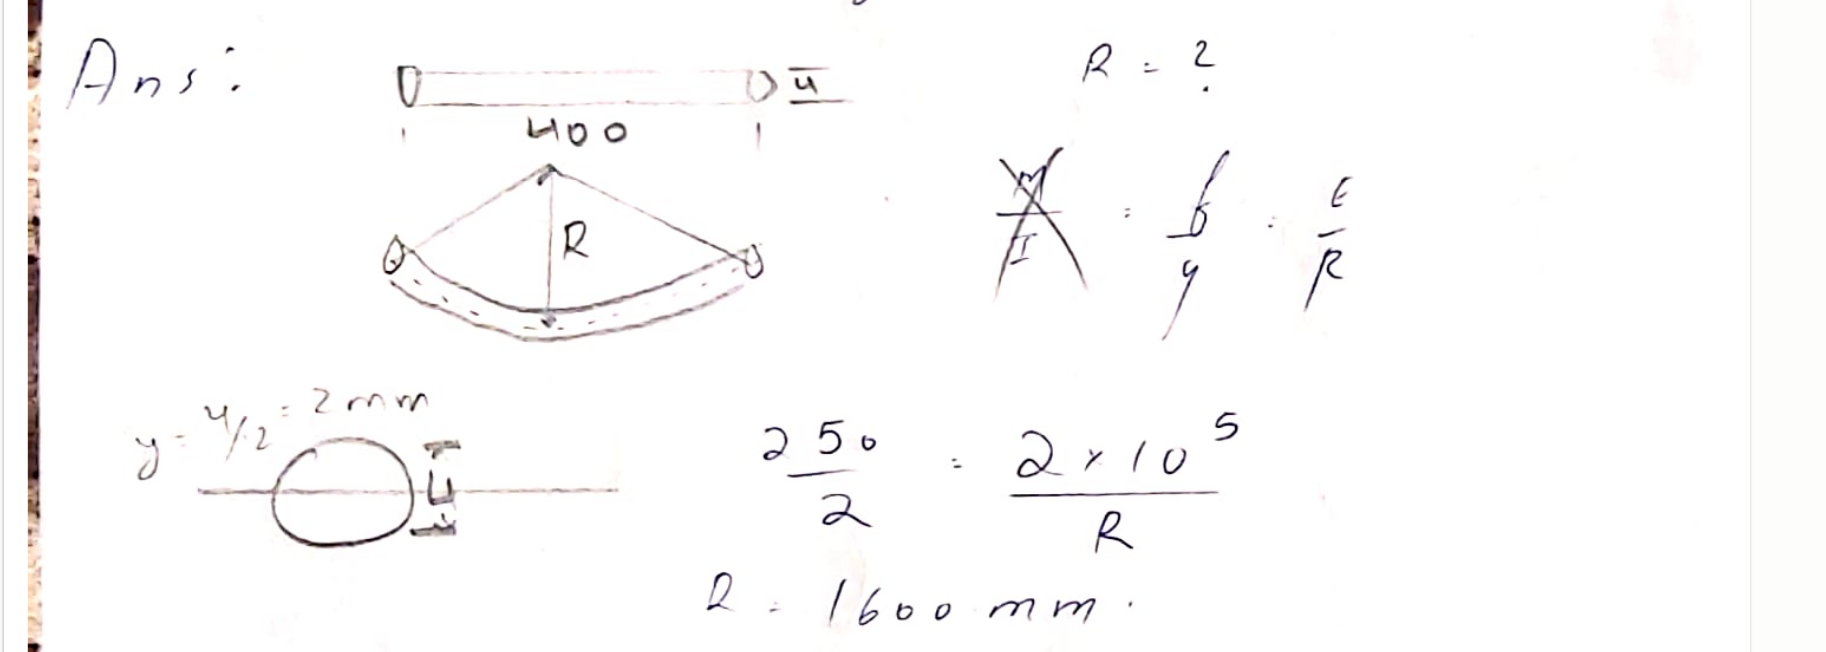 Ans:
4
R = ?
400
R
M/I = f/y = E/R
y = 4/2 = 2mm
4
250/2 = 2×10⁵/R
R = 1600 mm.